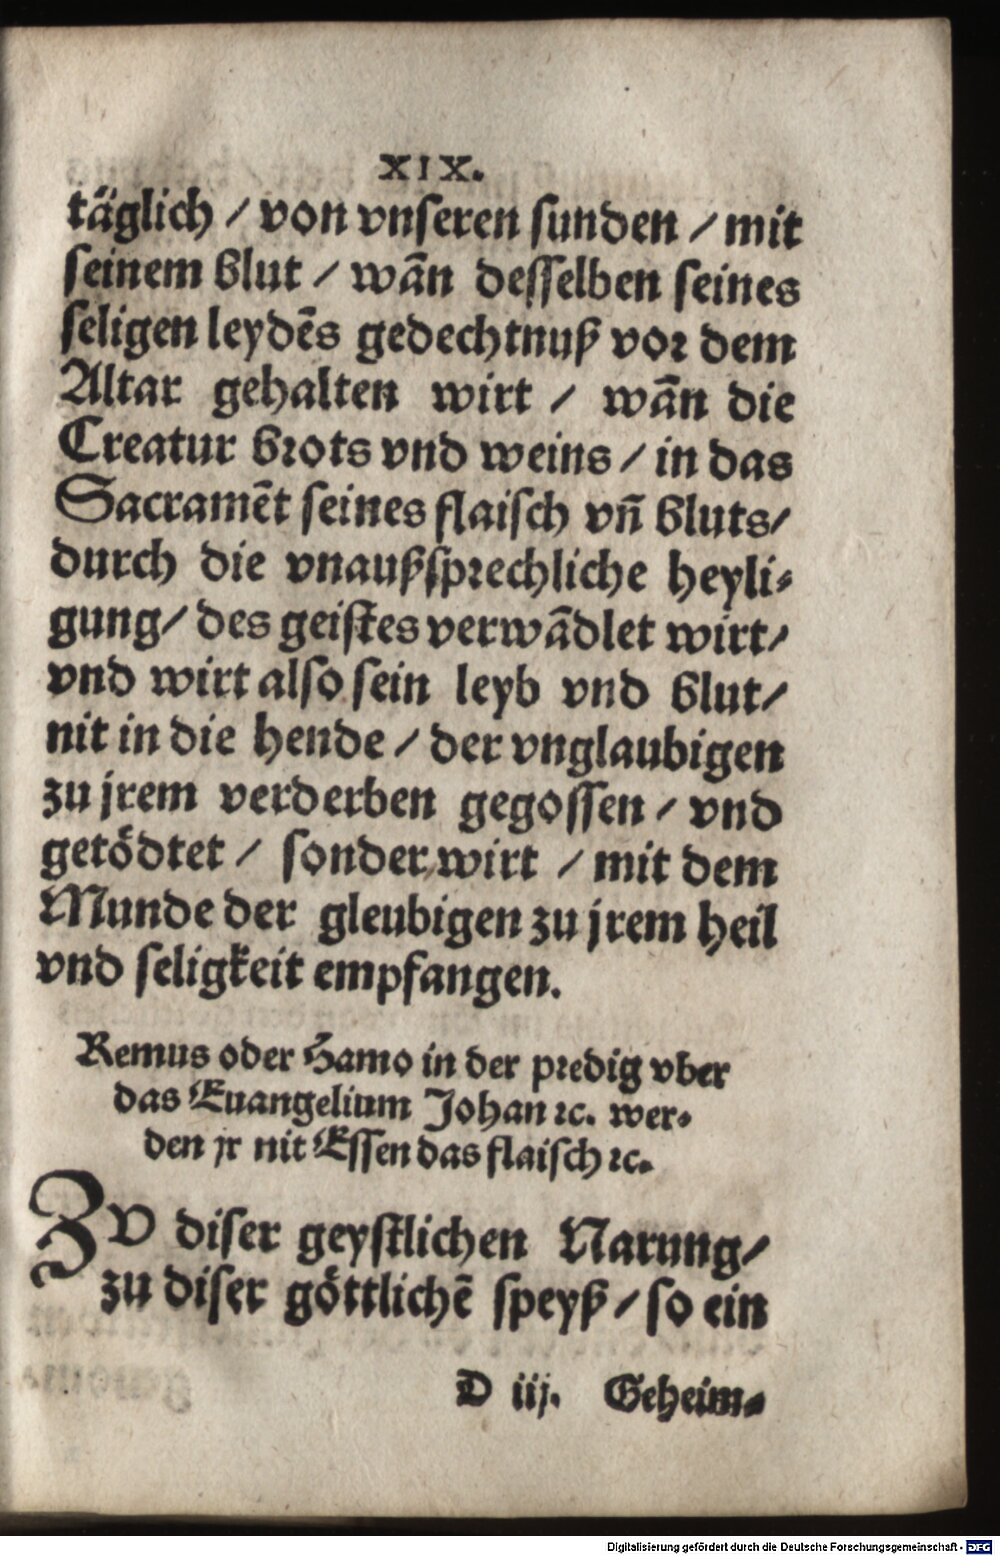 XIX.
täglich / von vnseren sunden / mit
seinem blut / wañ desselben seines
seligen leydēs gedechtnuß vor dem
Altar gehalten wirt / wañ die
Creatur brots vnd weins / in das
Sacramēt seines flaisch vñ bluts /
durch die vnaußsprechliche heyli-
gung / des geistes verwādlet wirt /
vnd wirt also sein leyb vnd blut /
nit in die hende / der vnglaubigen
zu jrem verderben gegossen / vnd
getödtet / sonder wirt / mit dem
Munde der gleubigen zu jrem heil
vnd seligkeit empfangen.
Remus oder Hamo in der predig vber
das Euangelium Johan ꝛc. wer-
den jr nit Essen das flaisch ꝛc.
ZV diser geystlichen Narung /
zu diser göttlichē speyß / so ein
D iij. Geheim-
Digitalisierung gefördert durch die Deutsche Forschungsgemeinschaft - DFG